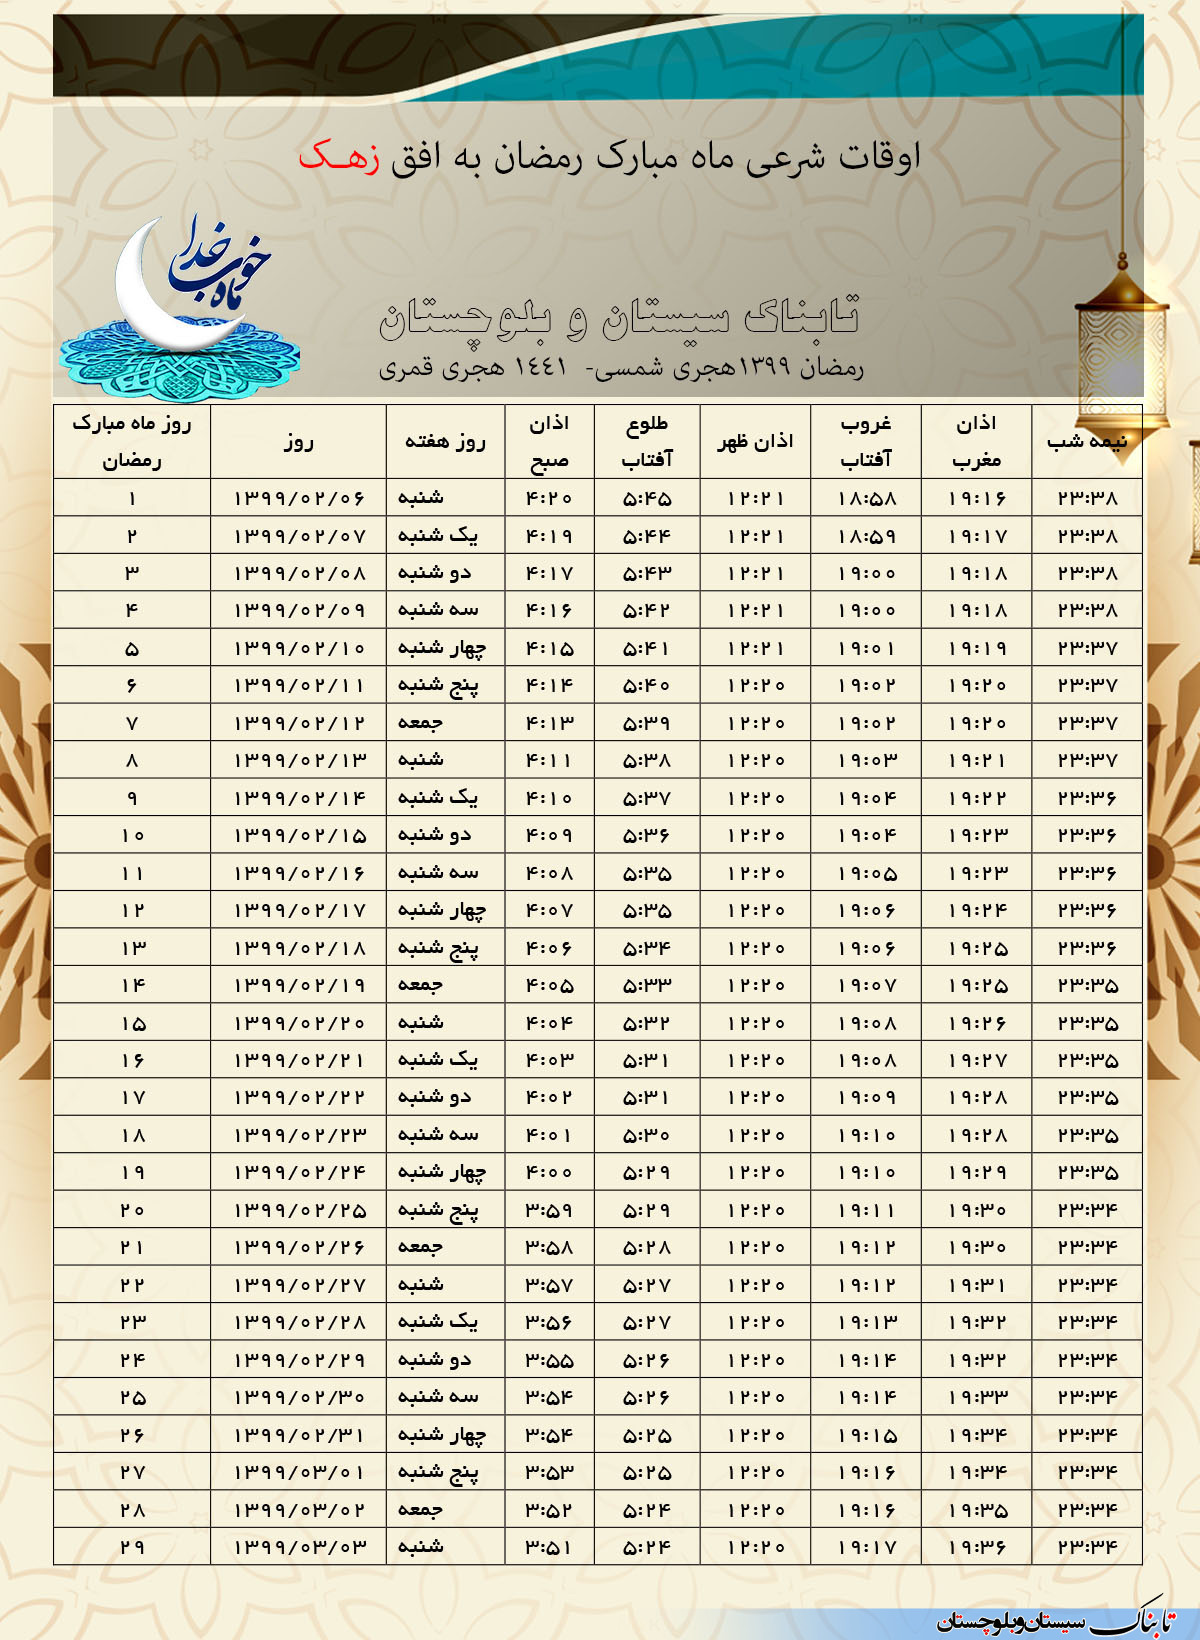 اوقات شرعی ماه مبارک رمضان به افق زهـک
ماه خوب خدا
تابناک سیستان و بلوچستان
رمضان ۱۳۹۹هجری شمسی- ۱٤٤۱ هجری قمری
روز ماه مبارک رمضان روز روز هفته اذان صبح طلوع آفتاب اذان ظهر غروب آفتاب اذان مغرب نیمه شب
۱ ۱۳۹۹/۰۲/۰۶ شنبه ۴:۲۰ ۵:۴۵ ۱۲:۲۱ ۱۸:۵۸ ۱۹:۱۶ ۲۳:۳۸
۲ ۱۳۹۹/۰۲/۰۷ یک شنبه ۴:۱۹ ۵:۴۴ ۱۲:۲۱ ۱۸:۵۹ ۱۹:۱۷ ۲۳:۳۸
۳ ۱۳۹۹/۰۲/۰۸ دو شنبه ۴:۱۷ ۵:۴۳ ۱۲:۲۱ ۱۹:۰۰ ۱۹:۱۸ ۲۳:۳۸
۴ ۱۳۹۹/۰۲/۰۹ سه شنبه ۴:۱۶ ۵:۴۲ ۱۲:۲۱ ۱۹:۰۰ ۱۹:۱۸ ۲۳:۳۸
۵ ۱۳۹۹/۰۲/۱۰ چهار شنبه ۴:۱۵ ۵:۴۱ ۱۲:۲۱ ۱۹:۰۱ ۱۹:۱۹ ۲۳:۳۷
۶ ۱۳۹۹/۰۲/۱۱ پنج شنبه ۴:۱۴ ۵:۴۰ ۱۲:۲۰ ۱۹:۰۲ ۱۹:۲۰ ۲۳:۳۷
۷ ۱۳۹۹/۰۲/۱۲ جمعه ۴:۱۳ ۵:۳۹ ۱۲:۲۰ ۱۹:۰۲ ۱۹:۲۰ ۲۳:۳۷
۸ ۱۳۹۹/۰۲/۱۳ شنبه ۴:۱۱ ۵:۳۸ ۱۲:۲۰ ۱۹:۰۳ ۱۹:۲۱ ۲۳:۳۷
۹ ۱۳۹۹/۰۲/۱۴ یک شنبه ۴:۱۰ ۵:۳۷ ۱۲:۲۰ ۱۹:۰۴ ۱۹:۲۲ ۲۳:۳۶
۱۰ ۱۳۹۹/۰۲/۱۵ دو شنبه ۴:۰۹ ۵:۳۶ ۱۲:۲۰ ۱۹:۰۴ ۱۹:۲۳ ۲۳:۳۶
۱۱ ۱۳۹۹/۰۲/۱۶ سه شنبه ۴:۰۸ ۵:۳۵ ۱۲:۲۰ ۱۹:۰۵ ۱۹:۲۳ ۲۳:۳۶
۱۲ ۱۳۹۹/۰۲/۱۷ چهار شنبه ۴:۰۷ ۵:۳۵ ۱۲:۲۰ ۱۹:۰۶ ۱۹:۲۴ ۲۳:۳۶
۱۳ ۱۳۹۹/۰۲/۱۸ پنج شنبه ۴:۰۶ ۵:۳۴ ۱۲:۲۰ ۱۹:۰۶ ۱۹:۲۵ ۲۳:۳۶
۱۴ ۱۳۹۹/۰۲/۱۹ جمعه ۴:۰۵ ۵:۳۳ ۱۲:۲۰ ۱۹:۰۷ ۱۹:۲۵ ۲۳:۳۵
۱۵ ۱۳۹۹/۰۲/۲۰ شنبه ۴:۰۴ ۵:۳۲ ۱۲:۲۰ ۱۹:۰۸ ۱۹:۲۶ ۲۳:۳۵
۱۶ ۱۳۹۹/۰۲/۲۱ یک شنبه ۴:۰۳ ۵:۳۱ ۱۲:۲۰ ۱۹:۰۸ ۱۹:۲۷ ۲۳:۳۵
۱۷ ۱۳۹۹/۰۲/۲۲ دو شنبه ۴:۰۲ ۵:۳۱ ۱۲:۲۰ ۱۹:۰۹ ۱۹:۲۸ ۲۳:۳۵
۱۸ ۱۳۹۹/۰۲/۲۳ سه شنبه ۴:۰۱ ۵:۳۰ ۱۲:۲۰ ۱۹:۱۰ ۱۹:۲۸ ۲۳:۳۵
۱۹ ۱۳۹۹/۰۲/۲۴ چهار شنبه ۴:۰۰ ۵:۲۹ ۱۲:۲۰ ۱۹:۱۰ ۱۹:۲۹ ۲۳:۳۵
۲۰ ۱۳۹۹/۰۲/۲۵ پنج شنبه ۳:۵۹ ۵:۲۹ ۱۲:۲۰ ۱۹:۱۱ ۱۹:۳۰ ۲۳:۳۴
۲۱ ۱۳۹۹/۰۲/۲۶ جمعه ۳:۵۸ ۵:۲۸ ۱۲:۲۰ ۱۹:۱۲ ۱۹:۳۰ ۲۳:۳۴
۲۲ ۱۳۹۹/۰۲/۲۷ شنبه ۳:۵۷ ۵:۲۷ ۱۲:۲۰ ۱۹:۱۲ ۱۹:۳۱ ۲۳:۳۴
۲۳ ۱۳۹۹/۰۲/۲۸ یک شنبه ۳:۵۶ ۵:۲۷ ۱۲:۲۰ ۱۹:۱۳ ۱۹:۳۲ ۲۳:۳۴
۲۴ ۱۳۹۹/۰۲/۲۹ دو شنبه ۳:۵۵ ۵:۲۶ ۱۲:۲۰ ۱۹:۱۴ ۱۹:۳۲ ۲۳:۳۴
۲۵ ۱۳۹۹/۰۲/۳۰ سه شنبه ۳:۵۴ ۵:۲۶ ۱۲:۲۰ ۱۹:۱۴ ۱۹:۳۳ ۲۳:۳۴
۲۶ ۱۳۹۹/۰۲/۳۱ چهار شنبه ۳:۵۴ ۵:۲۵ ۱۲:۲۰ ۱۹:۱۵ ۱۹:۳۴ ۲۳:۳۴
۲۷ ۱۳۹۹/۰۳/۰۱ پنج شنبه ۳:۵۳ ۵:۲۵ ۱۲:۲۰ ۱۹:۱۶ ۱۹:۳۴ ۲۳:۳۴
۲۸ ۱۳۹۹/۰۳/۰۲ جمعه ۳:۵۲ ۵:۲۴ ۱۲:۲۰ ۱۹:۱۶ ۱۹:۳۵ ۲۳:۳۴
۲۹ ۱۳۹۹/۰۳/۰۳ شنبه ۳:۵۱ ۵:۲۴ ۱۲:۲۰ ۱۹:۱۷ ۱۹:۳۶ ۲۳:۳۴
تابناک سیستان‌وبلوچستان